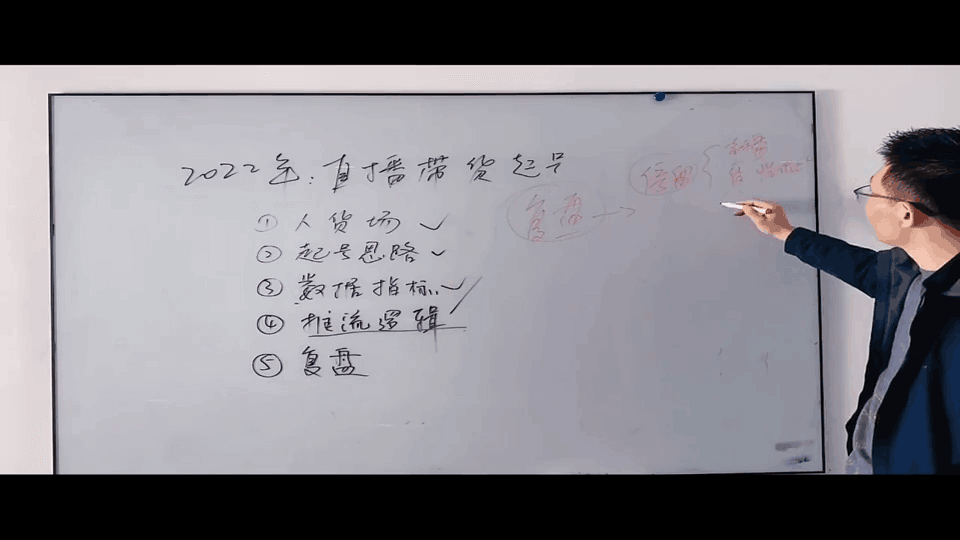 2022年：直播带货起号
① 人货场 ✓
② 起号思路 ✓
③ 数据指标 ✓
④ 推流逻辑
⑤ 复盘
复盘 →